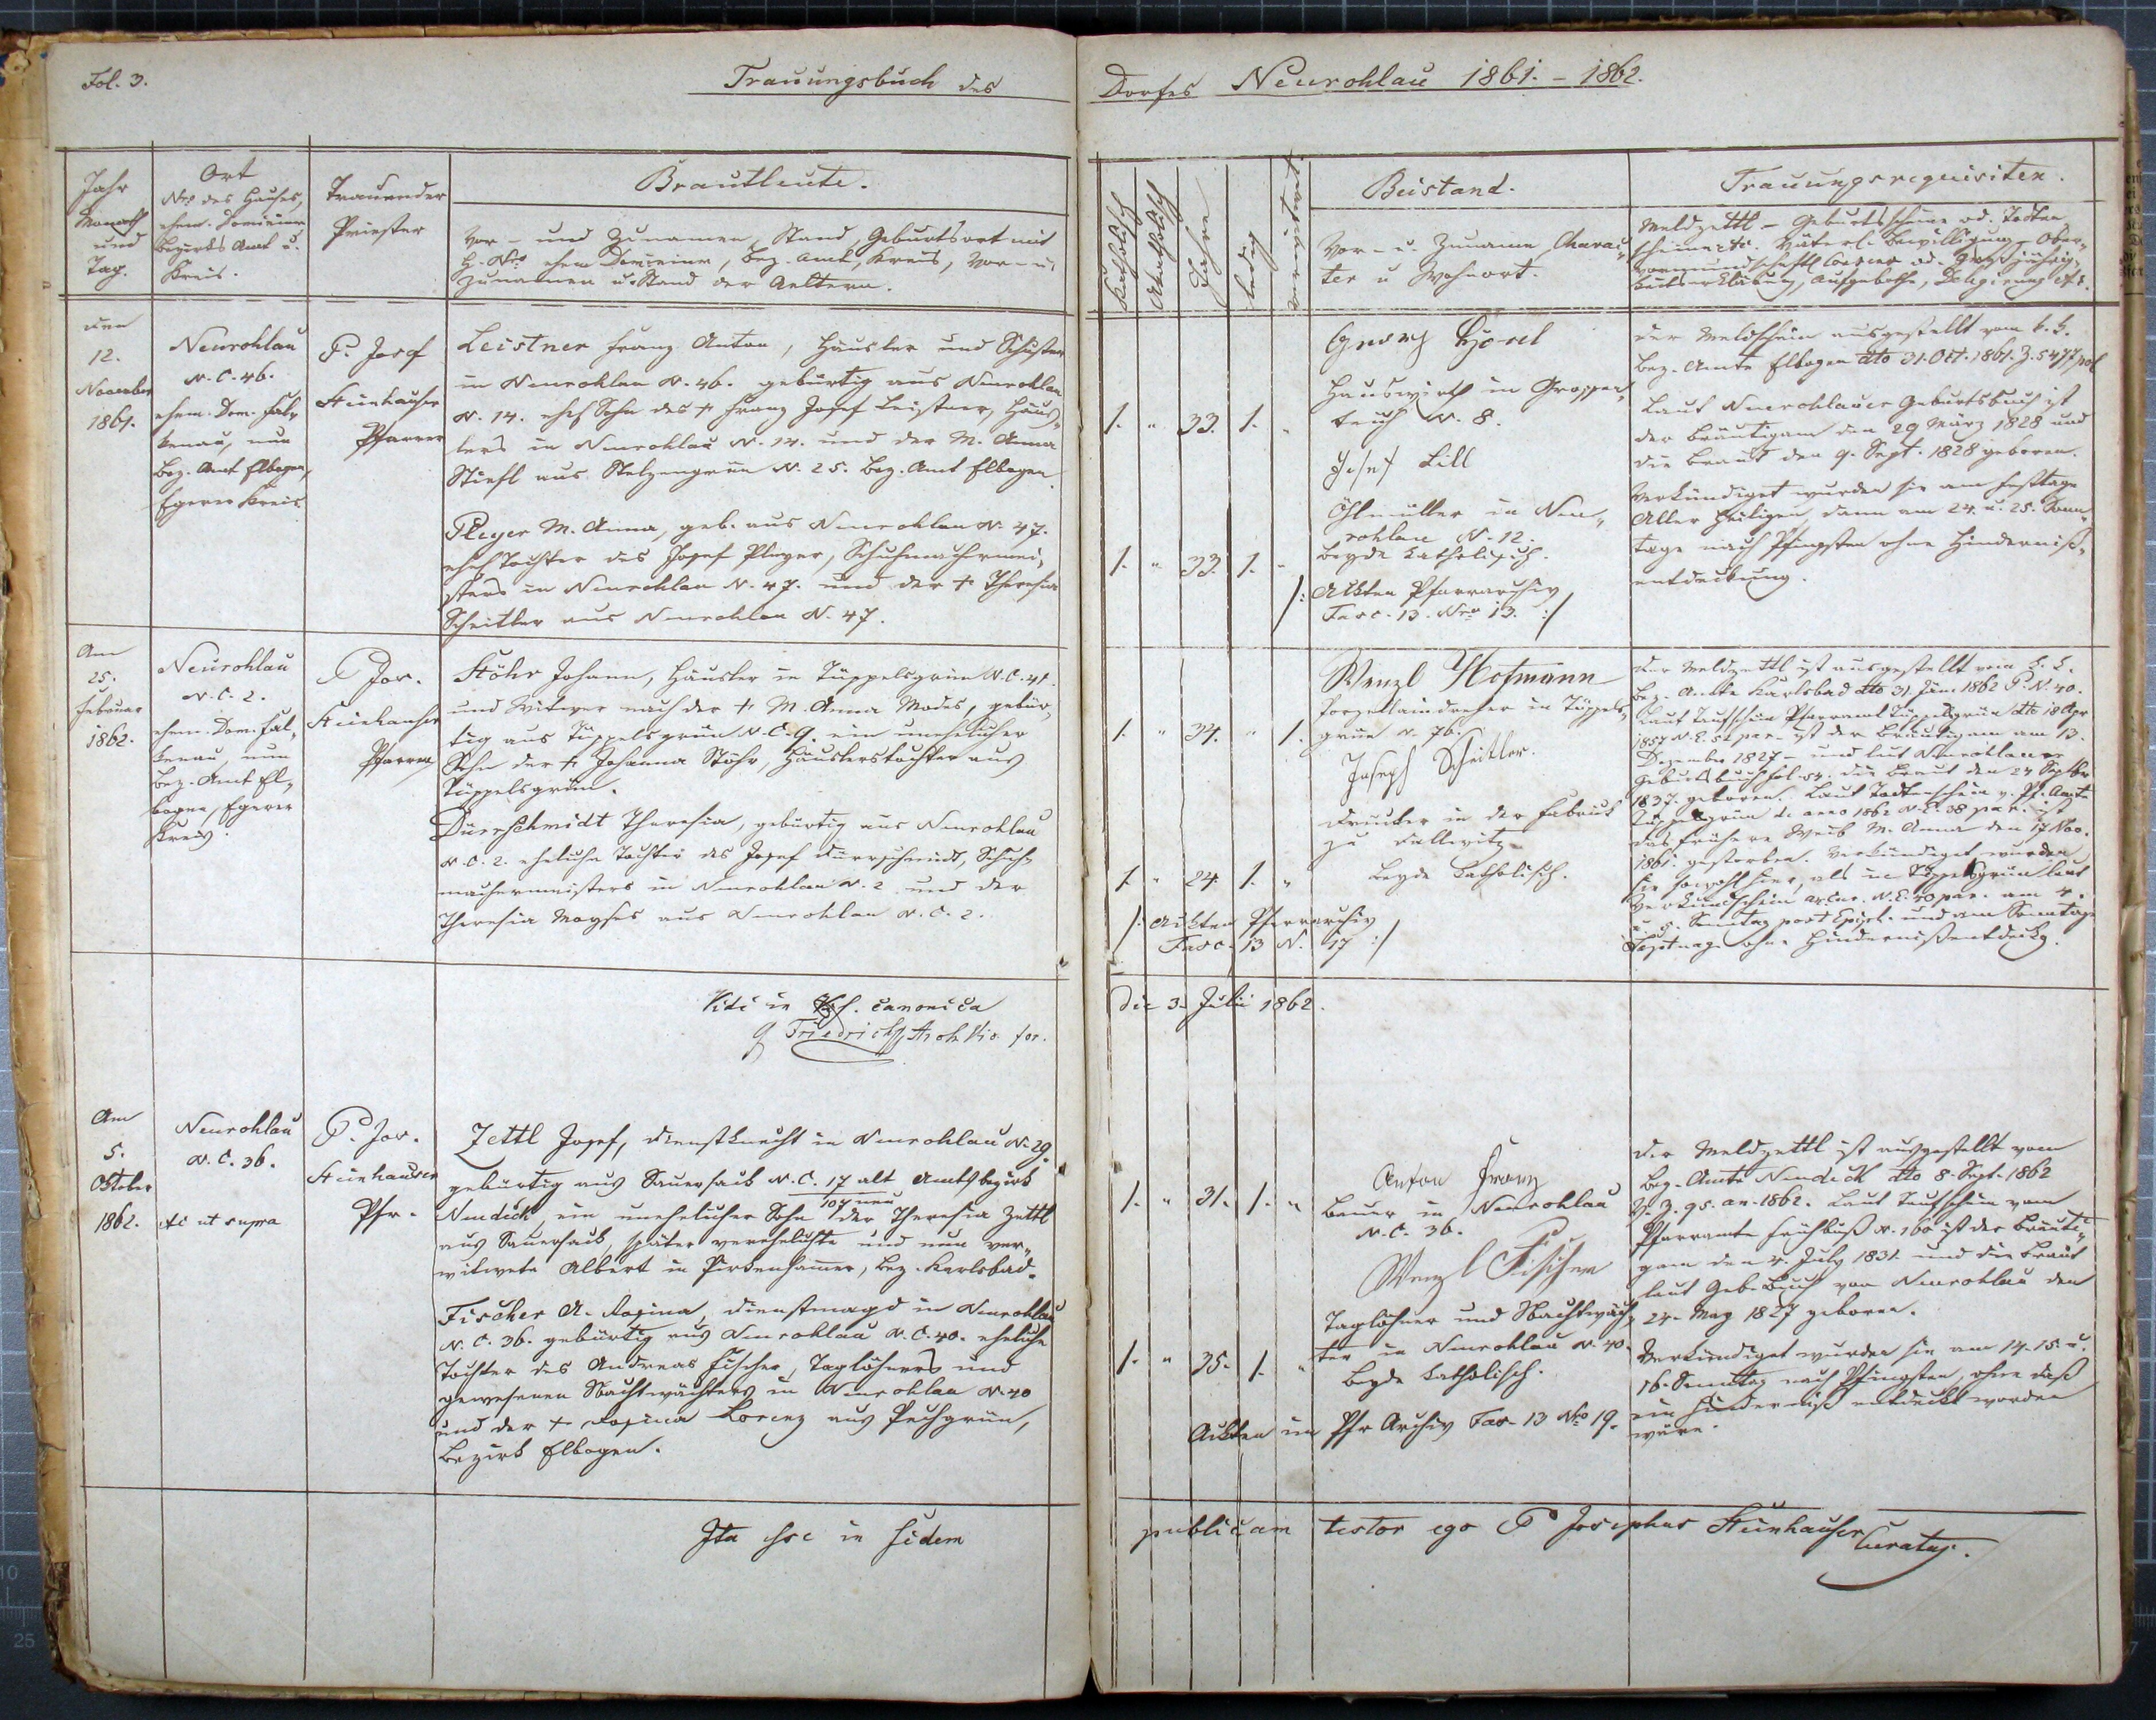 Fol. 3.
Trauungsbuch des
Dorfes Neurohlau 1861. - 1862.
Jahr
Monath
und
Tag.
Ort
Nro des Hauses,
ehem. Dominium
Bezirks Amt u.
Kreis.
Trauender
Priester
Brautleute.
Vor- und Zunamen, Stand, Geburtsort mit
H. Nro ehem. Dominium, Bez. Amt, Kreis, Vor- u.
Zunamen u. Stand der Aeltern.
Katholisch
Akatholisch
Jahre
ledig
verwitwet
Beistand.
Vor- u. Zuname, Charac-
ter u Wohnort.
Trauungsrequisiten.
Meldzettl. - Geburtsscheine od. Todten
scheine etc. Väterl. Bewilligung - Ober-
vormundschaftl. Consens od. Großjährig-
keitserklärung, Aufgebothe, Delegirung etc.
den
12.
November
1861.
Neurohlau
N. C. 46.
ehem. Dom. Fal-
kenau, nun
Bez. Amt Elbogen,
Egerer Kreis
P. Josef
Steinhauser
Pfarrer
Leistner Franz Anton, Häusler und Schuster
in Neurohlau N. 46. gebürtig aus Neurohlau
N. 14. ehel Sohn des + Franz Josef Leistner, Häus-
lers in Neurohlau N. 14. und der M. Anna
Stiefl aus Stelzengrün N. 25. Bez. Amt Elbogen.
Pleyer M. Anna, geb. aus Neurohlau N. 47.
ehel Tochter des Josef Pleyer, Schuhmachermei-
sters in Neurohlau N. 47. und der + Theresia
Scheitler aus Neurohlau N. 47.
1. " 33. 1. "
1. " 33. 1. "
Georg
Hauswirth in
teich N. 8.
Josef Lill
Öhlmüller in Neu-
rohlau N. 12.
beyde katholisch.
/: Akten Pfarrarchiv
Fasc. 13. Nro 13. :/
der Meldschein ausgestellt vom k. k.
Bez. Amte Elbogen dto 31. Oct. 1861. Z. 5477 pol
Laut Neurohlauer Geburtsbuch ist
der Bräutigam den 29 März 1828 und
die Braut den 9. Sept. 1828 geboren.
Verkündiget wurden sie am Festtage
Aller Heiligen, dann am 24. u. 25. Sonn-
tage nach Pfingsten ohne Hinderniß-
entdeckung.
Am
25.
Februar
1862.
Neurohlau
N. C. 2.
ehem. Dom. Fal-
kenau, nun
Bez. Amt El-
bogen, Egerer
Kreis.
P Jos.
Steinhauser
Pfarrer
Stöhr Johann, Häusler in Tüppelsgrün N. C. 41.
und Witwer nach der + M. Anna Modes, gebür-
tig aus Tüppelsgrün N. C. 9. ein unehelicher
Sohn der + Johanna Stöhr, Häuslerstochter aus
Tüppelsgrün.
Dürrschmidt Theresia, gebürtig aus Neurohlau
N. C. 2. eheliche Tochter des Josef Dürrschmidt, Schuh-
machermeisters in Neurohlau N. 2 und der
Theresia Moyses aus Neurohlau N. C. 2.
1. " 34. " 1.
1. " 24. 1. "
/: Ackten Pfarrarchiv
Fasc. 13 N. 17 :/
Wenzl Hofmann
Porzellaindreher in Tüppels-
grün N. 76.
Joseph Scheitler.
Drucker in der Fabrick
zu Dallwitz
beyde katholisch.
der Meldzettl ist ausgestellt vom k. k.
Bez. Amte Karlsbad dto 31. Jän. 1862 P. N. 40.
Laut Taufschein Pfarramt Tüppelsgrün dto 18 Apr
1857 N. E. 52 par. ist der Bräutigam am 13.
Dezember 1827 - und laut Neurohlauer
Geburtsbuch fol. 54. die Braut den 24 Septbr
1837. geboren. Laut Todtenschein v. Pf. Amte
Tüppelsgrün de anno 1862 N. E. 38 par. ist
das frühere Weib M. Anna den 17 Nov.
1861. gestorben. Verkündiget wurden
sie sowohl hier, als in Tüppelsgrün laut
Verkündschein N. E. 40 par. am 4.
u. 5. Sonntag post Epiph. und am Sonntage
Septuag. ohne Hindernißentdeckg.
Vidi in canonica
Friedrich Arch. Vic. for.
die 3. Julii 1862.
Am
5.
Oktober
1862.
Neurohlau
N. C. 36.
etc ut supra
P. Jos.
Steinhauser
Pfr.
Zettl Josef, Dienstknecht in Neurohlau N. 29.
gebürtig aus Sauersack N. C. 17 alt Amtsbezirk
107 neu
Neudeck, ein unehelicher Sohn der Theresia Zettl
aus Sauersack, später verehelichte und nun ver-
witwete Albert in Pirkenhammer, Bez. Karlsbad.
Fischer A. Rosina, Dienstmagd in Neurohlau
N. C. 36. gebürtig aus Neurohlau N. C. 40. eheliche
Tochter des Andreas Fischer, Taglöhners und
gewesenen Nachtwächters in Neurohlau N. 40
und der + Rosina Lorenz aus Puchgrün,
Bezirk Elbogen.
1. " 31. 1. "
1. " 35. 1. "
Anton Franz
Bauer in Neurohlau
N. C. 36.
Wenzl Fischer
Taglöhner und Nachtwäch-
ter in Neurohlau N. 40.
beyde katholisch.
Ackten im Pfr Archiv Fas. 13 Nro 19.
Der Meldzettl ist ausgestellt vom
Bez. Amte Neudeck dto 8. Sept. 1862
Z. 95. an. 1862. Laut Taufschein vom
Pfarramte Frühbuß N. 160 ist der Bräuti-
gam den 4. July 1831 und die Braut
laut Geb. Buch von Neurohlau den
24. May 1827 geboren.
Verkündiget wurden sie am 14. 15. u.
16. Sonntag nach Pfingsten, ohne daß
ein Hinderniß entdeckt worden
wäre.
Ita esse in fidem
publicam testor ego P Josephus Steinhauser
Curatus.